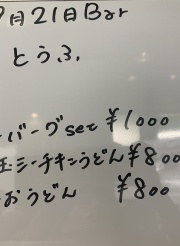 月21日Bar
とうふ.
ーバーグset ¥1000
玉シーチキンうどん¥800
おうどん ¥800